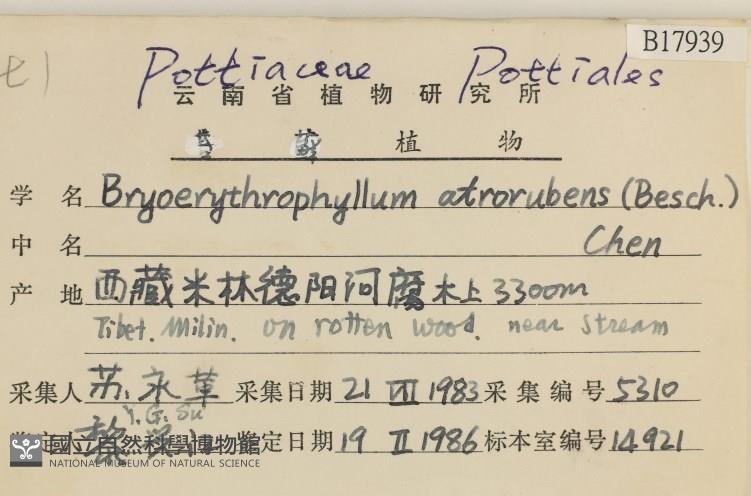 B17939
Pottiaceae Pottiales
七1
云南省植物研究所
苔藓植物
学名 Bryoerythrophyllum atrorubens (Besch.)
中名 Chen
产地 西藏米林德阳河腐木上 3300m
Tibet. Milin. on rotten wood. near stream
采集人 苏永革 采集日期 21 VII 1983 采集编号 5310
Y.G. Su
黎 定日期 19 II 1986 标本室编号 14921
國立自然科學博物館
NATIONAL MUSEUM OF NATURAL SCIENCE